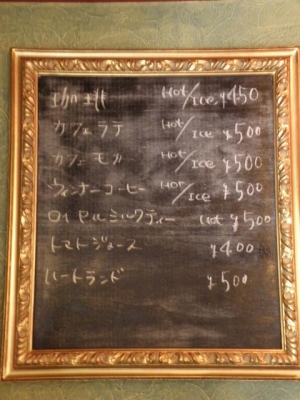 珈琲 Hot/Ice ¥450
カフェラテ Hot/Ice ¥500
カフェモカ Hot/Ice ¥500
ウィンナーコーヒー Hot/Ice ¥500
ロイヤルミルクティー Hot ¥500
トマトジュース ¥400
ハートランド ¥500